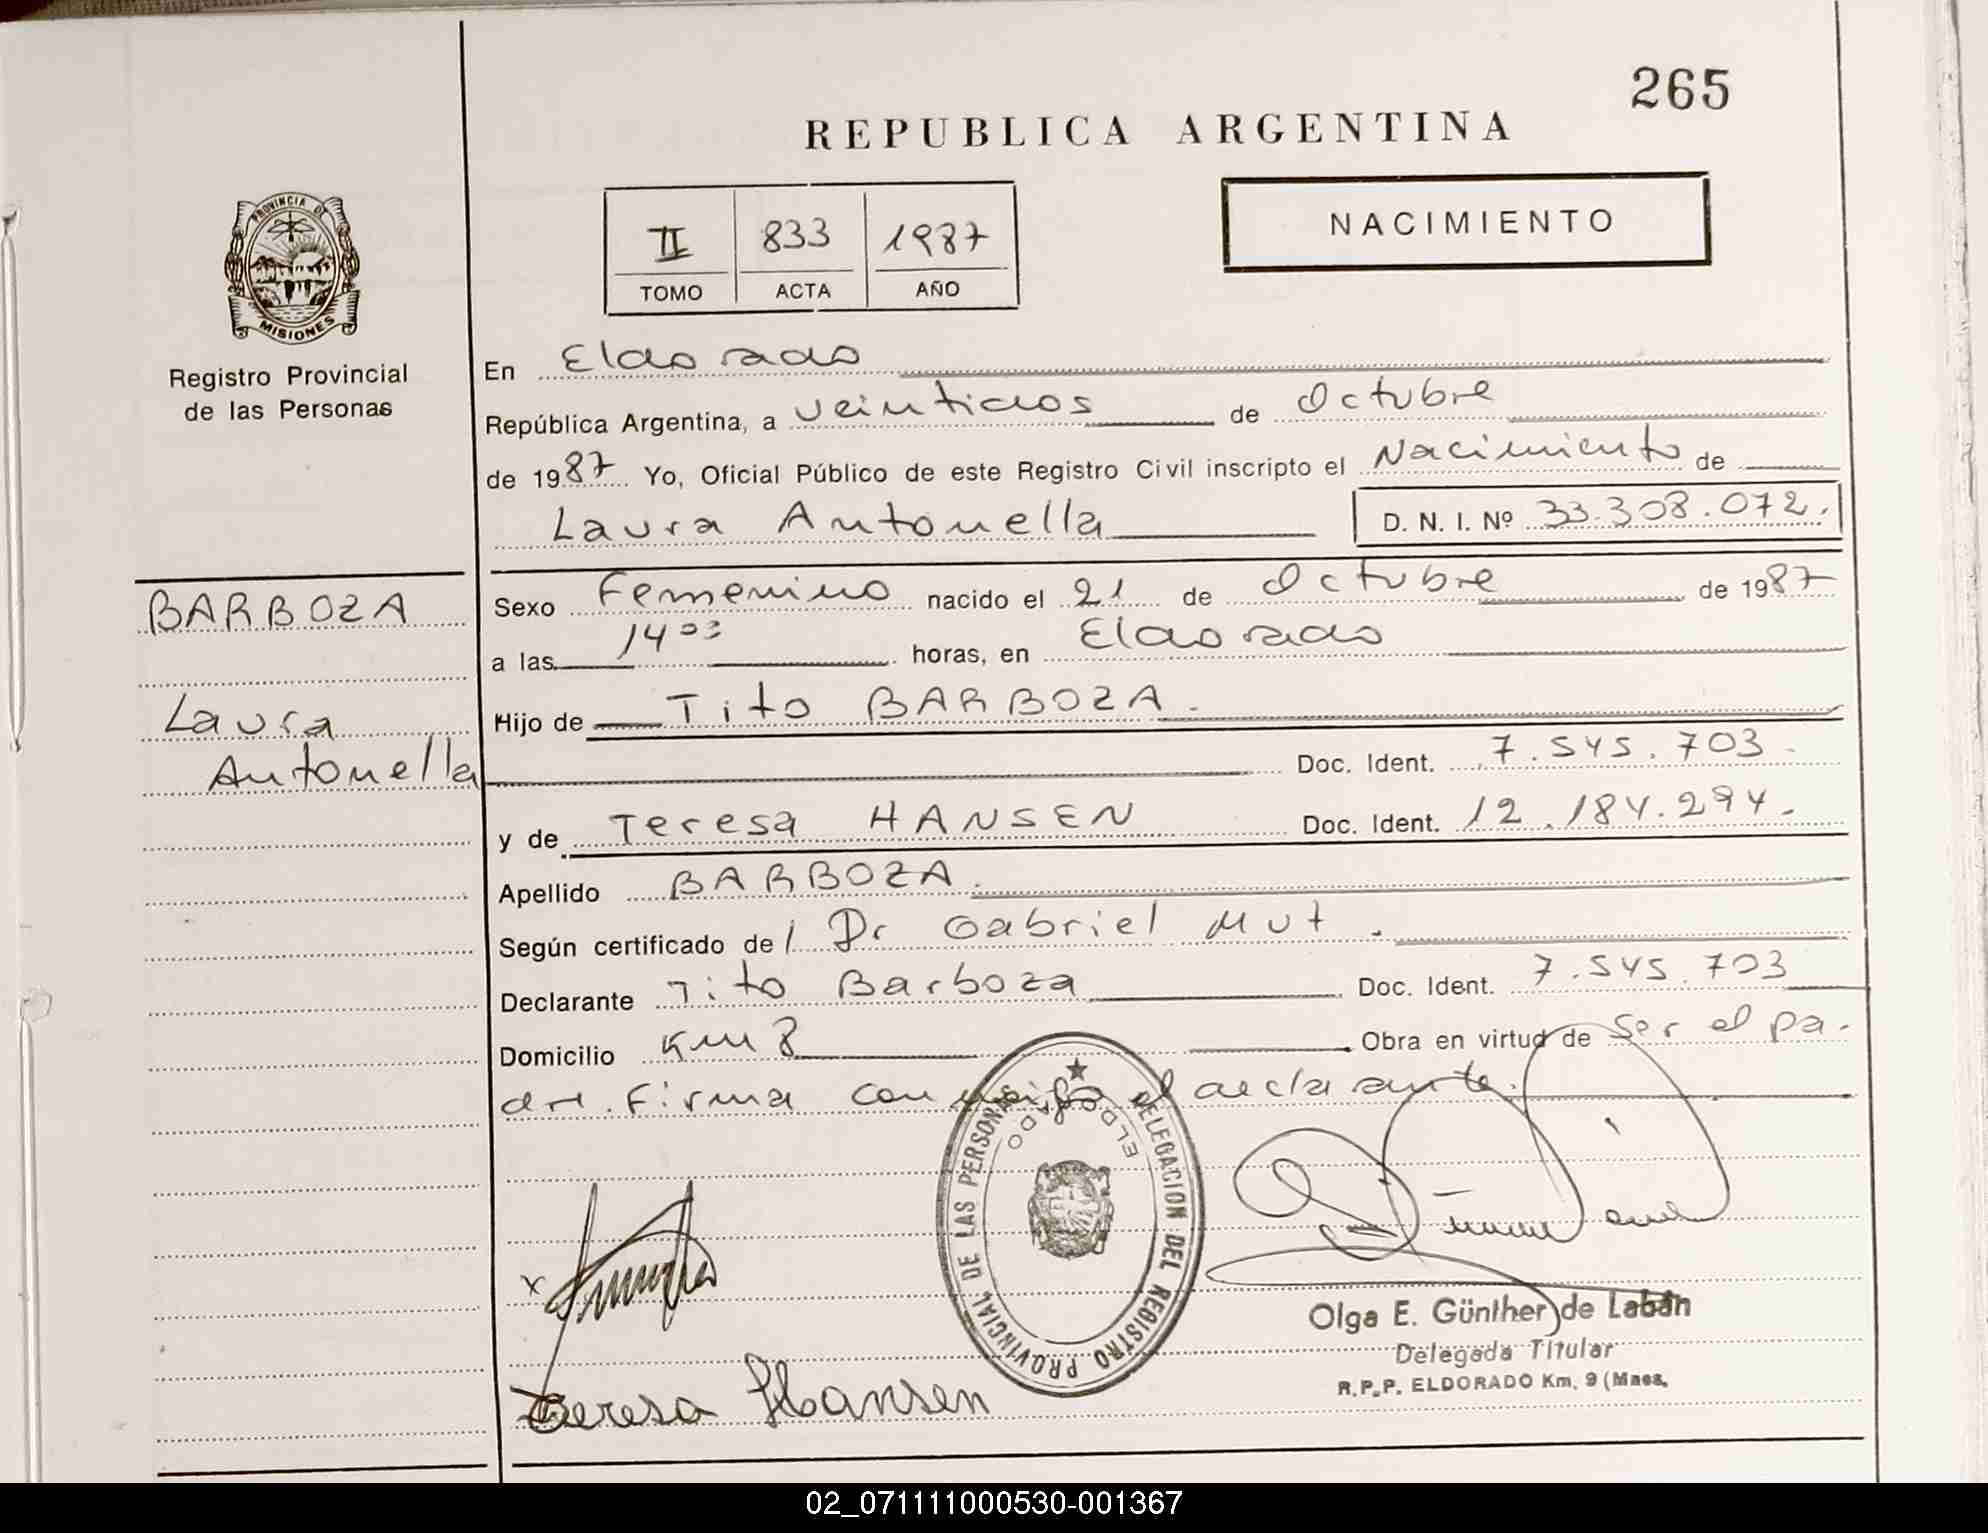 265
REPUBLICA ARGENTINA
PROVINCIA DE
MISIONES
Registro Provincial
de las Personas
II 833 1987
TOMO ACTA AÑO
NACIMIENTO
En Eldorado
República Argentina, a veintidos de Octubre
de 1987 Yo, Oficial Público de este Registro Civil inscripto el Nacimiento de
Laura Antonella D. N. I. Nº 33.308.072.
BARBOZA
Laura
Antonella
Sexo Femenino nacido el 21 de Octubre de 1987
a las 14 03 horas, en Eldorado
Hijo de Tito BARBOZA.
Doc. Ident. 7.545.703.
y de Teresa HANSEN Doc. Ident. 12.184.294.
Apellido BARBOZA.
Según certificado de / Dr Gabriel Mut.
Declarante Tito Barboza Doc. Ident. 7.545.703
Domicilio Km 8 Obra en virtud de ser el pa-
dre. Firma conmigo el declarante.
DELEGACION DEL REGISTRO PROVINCIAL DE LAS PERSONAS
ELDORADO
x
Teresa Hansen
Olga E. Günther de Labán
Delegada Titular
R.P.P. ELDORADO Km. 9 (Mnes.
02_071111000530-001367